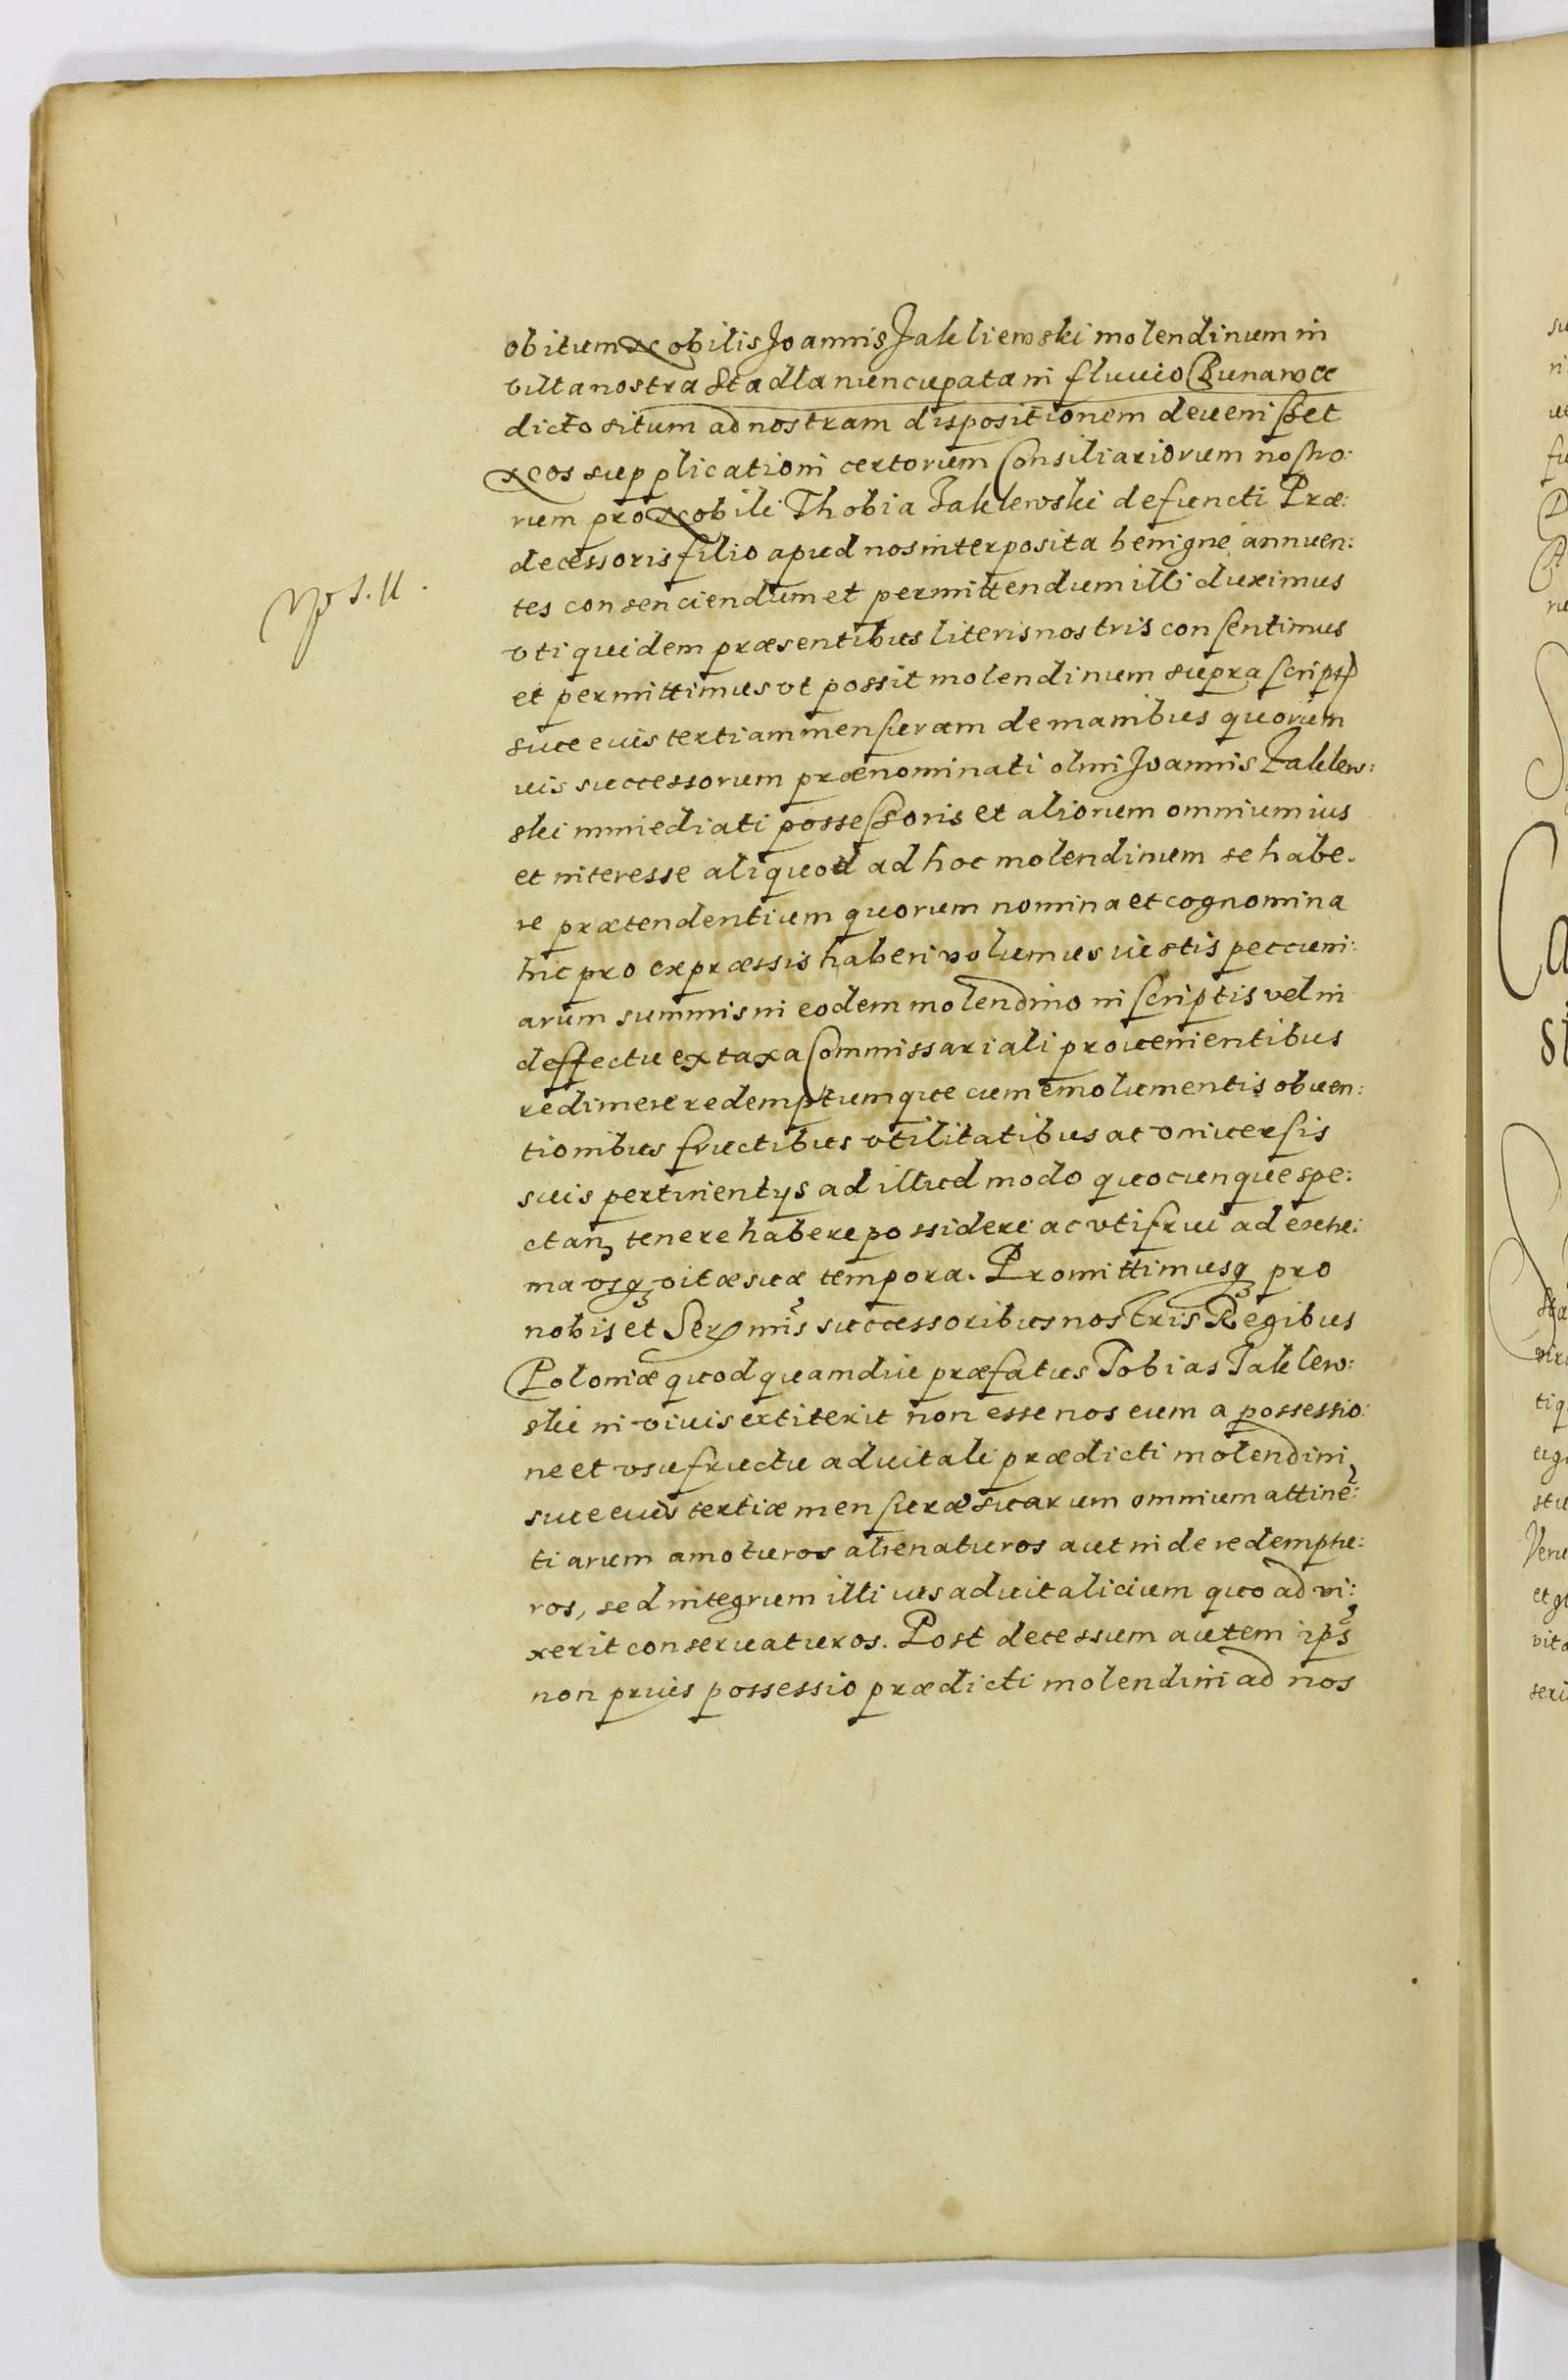 obitum Nobilis Joannis Jakliewski molendinum in
villa nostra Stadla nuncupata in fluuio Bunarowce
dicto situm ad nostram dispositionem deuenisset
Nos supplicationi certorum Consiliariorum nostro:
rum pro Nobili Thobia Jaklewski defuncti Præ:
decessoris filio apud nos interposita benigne annuen:
tes consenciendum et permittendum illi duximus
vti quidem præsentibus literis nostris consentimus
et permittimus vt possit molendinum supra script
siue eius tertiam mensuram de manibus quorum
uis successorum prænominati olim Joannis Jaklew:
ski immediati possessoris et aliorum omnium ius
et interesse aliquod ad hoc molendinum se habe.
re prætendentium quorum nomina et cognomina
hic pro expræssis haberi volumus iustis peccuni:
arum summis in eodem molendino inscriptis vel in
deffectu ex taxa Commissariali prouenientibus
redimere redemptumque cum emolumentis obuen:
tionibus fructibus vtilitatibus ac vniuersis
suis pertinentijs ad illud modo quocunque spe:
ctanꝫ tenere habere possidere ac vti frui ad extre:
ma vsqꝫ vitæ suæ tempora. Promittimusqꝫ pro
nobis et Sermis successoribus nostris Regibus
Poloniæ quod quamdiu præfatus Tobias Jaklew:
ski in viuis extiterit non esse nos eum a possessio:
ne et vsufructu aduitali prædicti molendini
siue eius tertiæ mensuræ suarum omnium attinē:
tiarum amoturos alienaturos aut inde redemptu:
ros, sed integrum illi ius aduitalicium quoad vi:
xerit conseruaturos. Post decessum autem ips
non prius possessio prædicti molendini ad nos